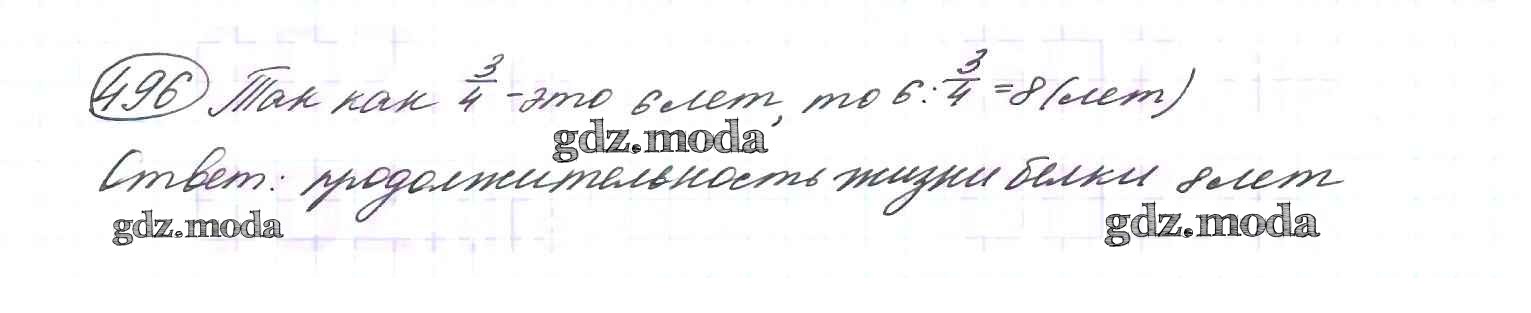 496 Так как 3/4 - это 6 лет, то 6 : 3/4 = 8 (лет)
gdz.moda
Ответ: продолжительность жизни белки 8 лет
gdz.moda gdz.moda